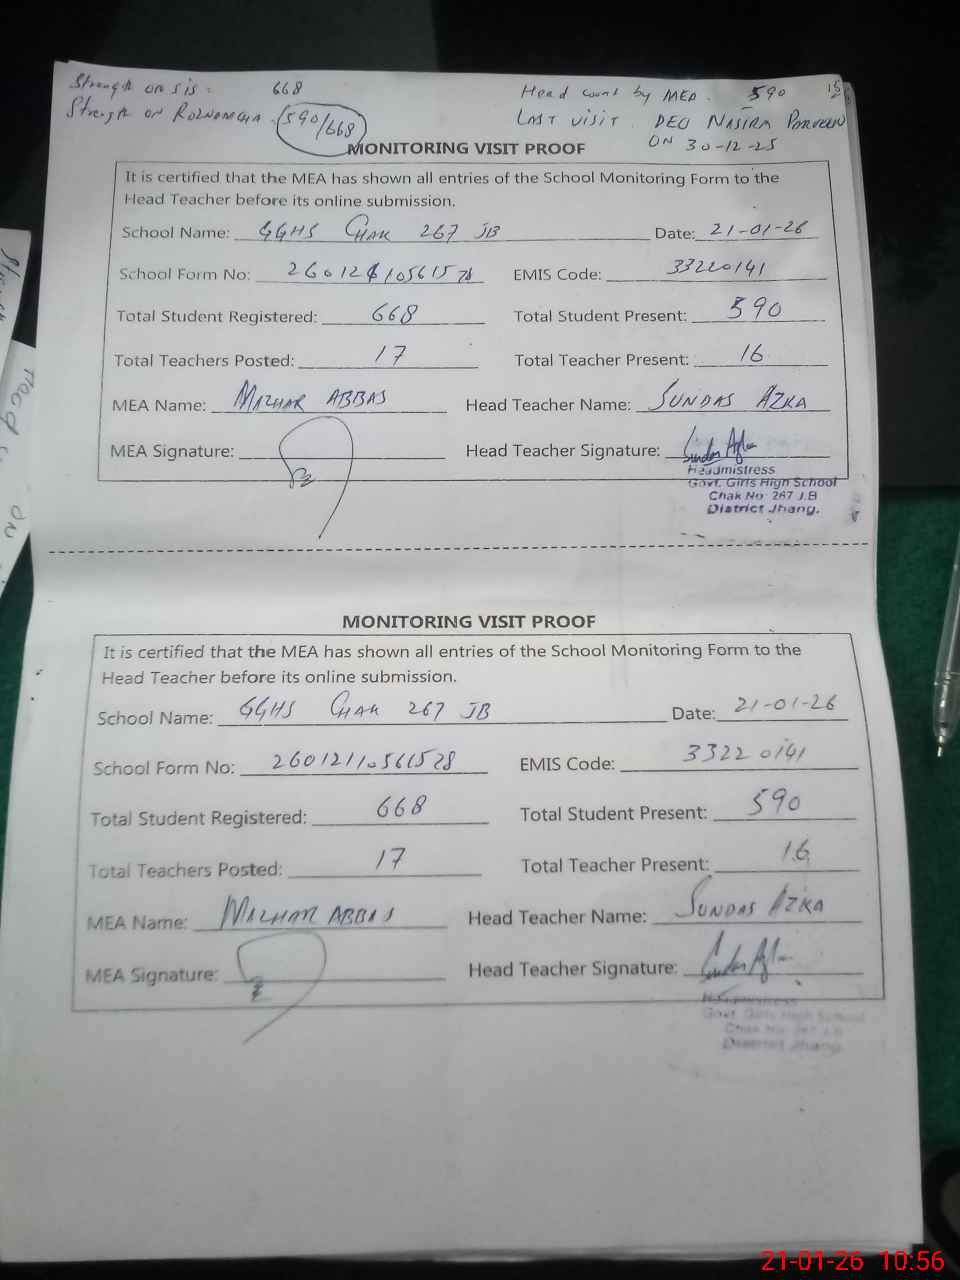 Strength on sis: 668
Head count by MEA. 590
Strength on ROZNAMCHA. 590/668
LAST VISIT. DEO NASIRA PARVEEN
ON 30-12-25
MONITORING VISIT PROOF
It is certified that the MEA has shown all entries of the School Monitoring Form to the
Head Teacher before its online submission.
School Name: GGHS CHAK 267 JB Date: 21-01-26
School Form No: EMIS Code: 33220141
Total Student Registered: 668 Total Student Present: 590
Total Teachers Posted: 17 Total Teacher Present: 16
MEA Name: MAZHAR ABBAS Head Teacher Name: SUNDAS AZKA
MEA Signature: Head Teacher Signature: Sundas Azka
Headmistress
Govt. Girls High School
Chak No 267 J.B
District Jhang.
MONITORING VISIT PROOF
It is certified that the MEA has shown all entries of the School Monitoring Form to the
Head Teacher before its online submission.
School Name: GGHS CHAK 267 JB Date: 21-01-26
School Form No: EMIS Code: 33220141
Total Student Registered: 668 Total Student Present: 590
Total Teachers Posted: 17 Total Teacher Present: 16
MEA Name: MAZHAR ABBAS Head Teacher Name: SUNDAS AZKA
MEA Signature: Head Teacher Signature: Sundas Azka
Headmistress
Govt. Girls High School
Chak No 267 J.B
District Jhang.
21-01-26 10:56